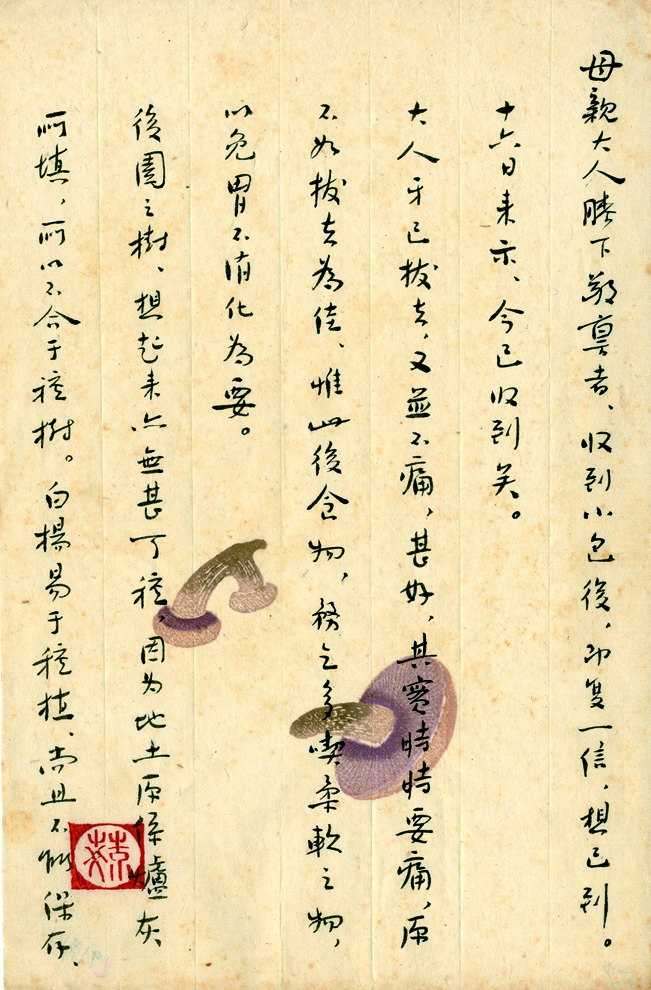 母親大人膝下敬稟者、收到小包後,即复一信,想已到。
十六日来示、今已收到矣。
大人牙已拔去,又並不痛,甚好,其實時時要痛,原
不如拔去為佳、惟此後食物,務乞多喫柔軟之物,
以免胃不消化為要。
後園之樹、想起来亦無甚可種,因为地土原係爐灰
所填,所以不合于種樹。白楊易于種植、尚且不能保存、